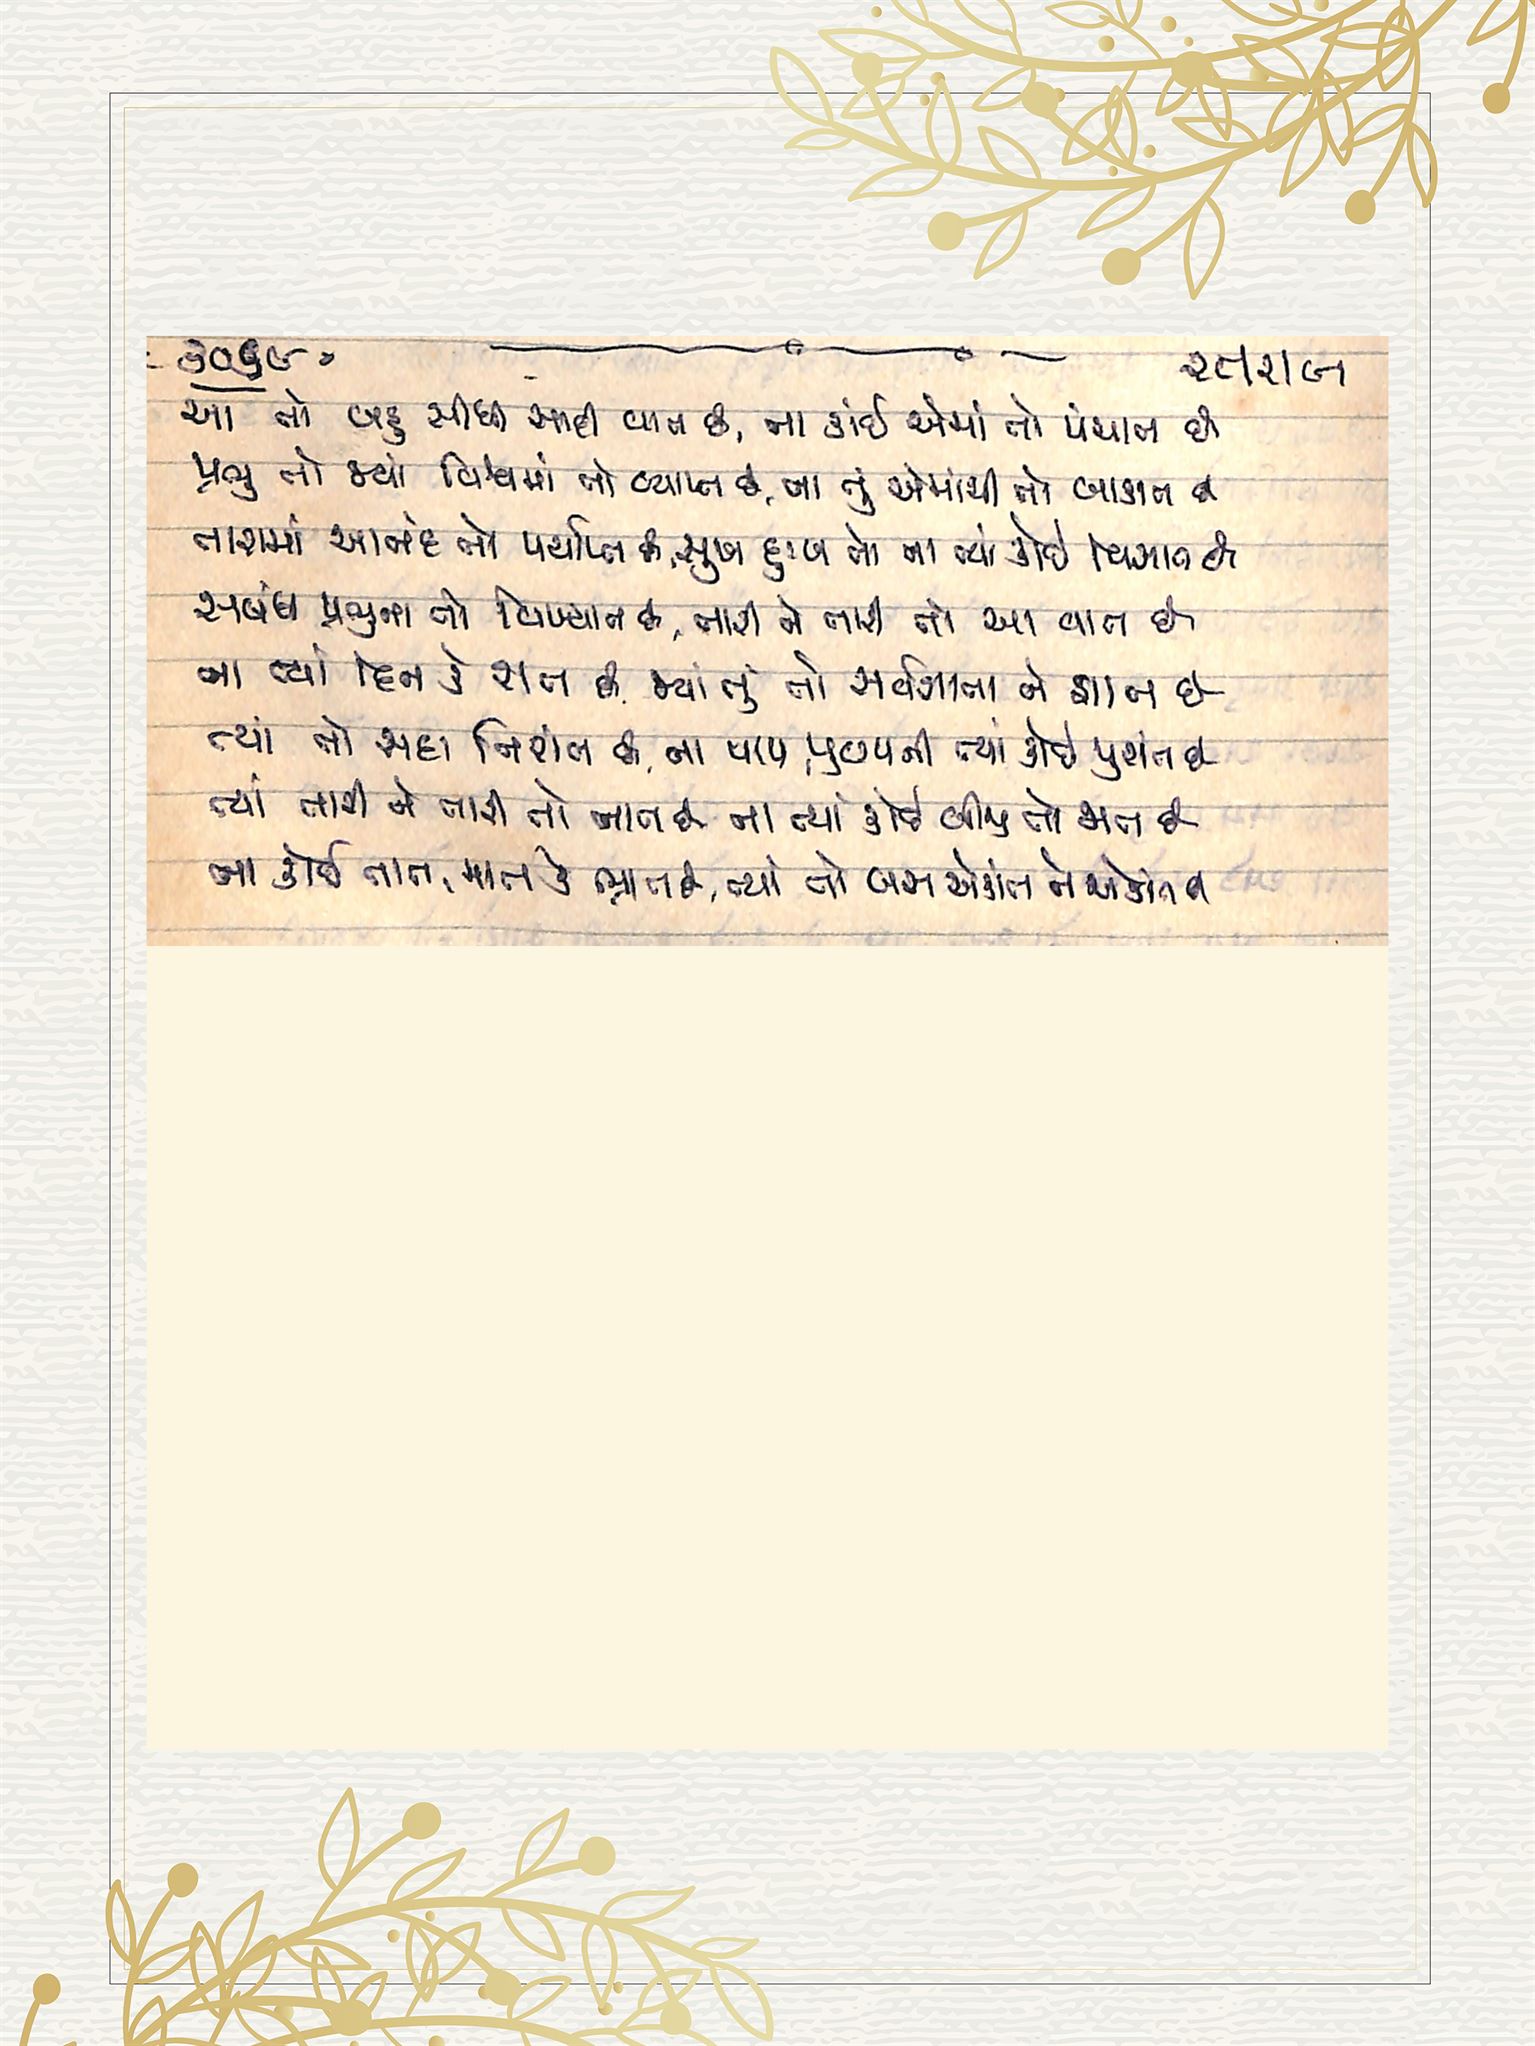 ૩૦૬૯ સતરાજ
આ તો બહુ સીધી સાદી વાત છે, ના કાંઈ એમાં તો પંચાત છે
પ્રભુ તો જ્યાં વિશ્વમાં તો વ્યાપ્ત છે, ના તું એમાંથી તો બાકાત છે
તારામાં આનંદ તો પર્યાપ્ત છે, સુખ દુઃખ તો ના ત્યાં કોઈ વિસાત છે
સબંધ પ્રભુના તો વિખ્યાત છે, તારી ને તારી તો આ વાત છે
ના ત્યાં દિન કે રાત છે. જ્યાં તું તો સર્વજ્ઞાતા ને જ્ઞાત છે
ત્યાં તો સદા નિરાંત છે, ના પાપ, પુણ્યની ત્યાં કોઈ પુરાંત છે
ત્યાં તારી ને તારી તો જાત છે ના ત્યાં કોઈ બીજી તો મત છે
ના કોઈ તાત, માત કે ભ્રાત છે, ત્યાં તો બસ એકાંત ને એકાંત છે